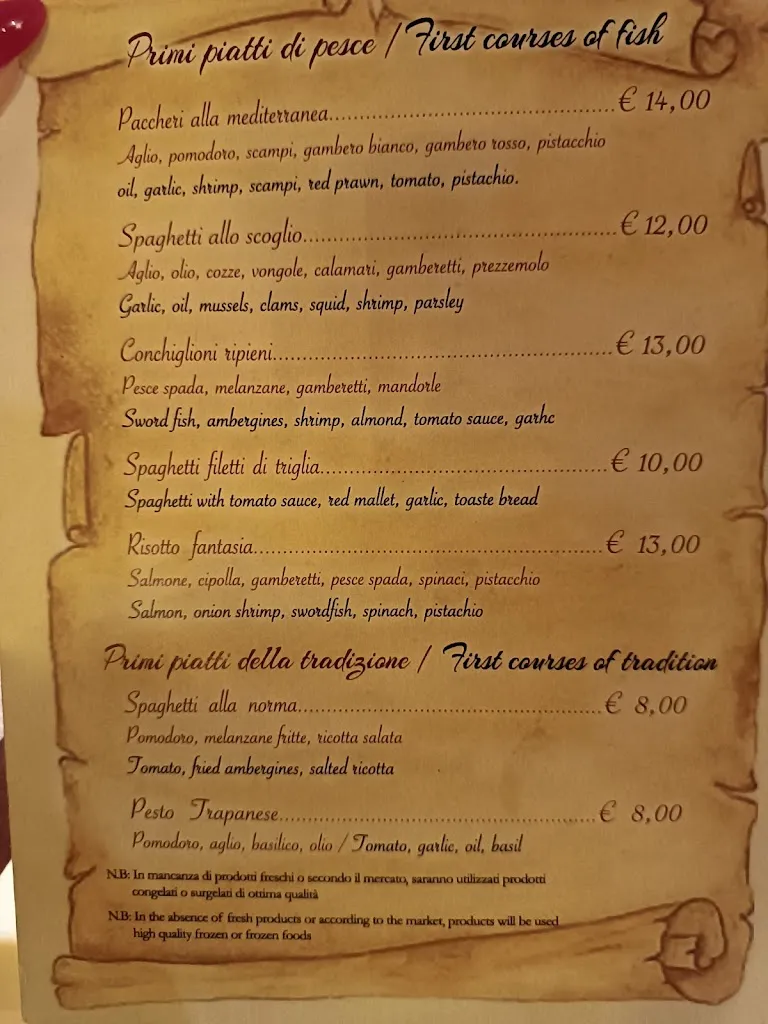 Primi piatti di pesce / First courses of fish
Paccheri alla mediterranea..........................................€ 14,00
Aglio, pomodoro, scampi, gambero bianco, gambero rosso, pistacchio
oil, garlic, shrimp, scampi, red prawn, tomato, pistachio.
Spaghetti allo scoglio..............................................€ 12,00
Aglio, olio, cozze, vongole, calamari, gamberetti, prezzemolo
Garlic, oil, mussels, clams, squid, shrimp, parsley
Conchiglioni ripieni..................................................€ 13,00
Pesce spada, melanzane, gamberetti, mandorle
Sword fish, ambergines, shrimp, almond, tomato sauce, garhc
Spaghetti filetti di triglia..........................................€ 10,00
Spaghetti with tomato sauce, red mallet, garlic, toaste bread
Risotto fantasia......................................................€ 13,00
Salmone, cipolla, gamberetti, pesce spada, spinaci, pistacchio
Salmon, onion shrimp, swordfish, spinach, pistachio
Primi piatti della tradizione / First courses of tradition
Spaghetti alla norma..............................................€ 8,00
Pomodoro, melanzane fritte, ricotta salata
Tomato, fried ambergines, salted ricotta
Pesto Trapanese..................................................€ 8,00
Pomodoro, aglio, basilico, olio / Tomato, garlic, oil, basil
N.B: In mancanza di prodotti freschi o secondo il mercato, saranno utilizzati prodotti
congelati o surgelati di ottima qualità
N.B: In the absence of fresh products or according to the market, products will be used
high quality frozen or frozen foods